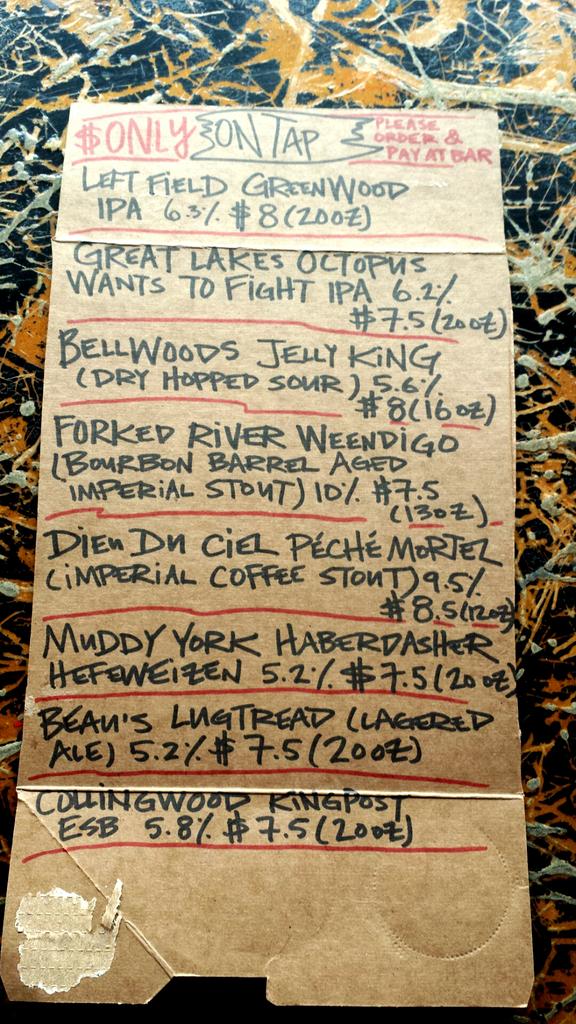 $ONLY ON TAP PLEASE ORDER & PAY AT BAR
LEFT FIELD GREENWOOD
IPA 6.3% $8 (20OZ)
GREAT LAKES OCTOPUS
WANTS TO FIGHT IPA 6.2%
$7.5 (20OZ)
BELLWOODS JELLY KING
(DRY HOPPED SOUR) 5.6%
$8 (16OZ)
FORKED RIVER WEENDIGO
(BOURBON BARREL AGED
IMPERIAL STOUT) 10% $7.5
(13OZ)
DIEU DU CIEL PÉCHÉ MORTEL
(IMPERIAL COFFEE STOUT) 9.5%
$8.5 (12OZ)
MUDDY YORK HABERDASHER
HEFEWEIZEN 5.2% $7.5 (20OZ)
BEAU'S LUGTREAD (LAGERED
ALE) 5.2% $7.5 (20OZ)
COLLINGWOOD KINGPOST
ESB 5.8% $7.5 (20OZ)